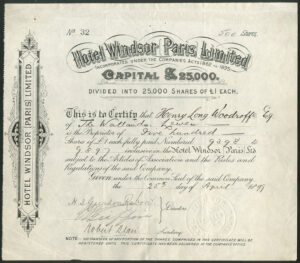 No 32
500 Shares.
Hotel Windsor (Paris) Limited
INCORPORATED UNDER THE COMPANIES ACTS 1862 TO 1893.
CAPITAL £25,000.
DIVIDED INTO 25,000 SHARES OF £1 EACH.
This is to Certify that Henry Long Woodroffe Esq
of The
is the Proprietor of Five hundred
Shares of £1 each fully paid, Numbered to
inclusive, in the Hotel Windsor (Paris) Ltd
subject to the Articles of Association and the Rules and
Regulations of the said Company.
Given under the Common Seal of the said Company
the day of April
Directors
Robert Blair Secretary
NOTE. NO TRANSFER OF ANY PORTION OF THE SHARES COMPRISED IN THIS CERTIFICATE WILL BE
REGISTERED UNTIL THIS CERTIFICATE HAS BEEN DELIVERED AT THE COMPANY'S OFFICE
HOTEL WINDSOR (PARIS) LIMITED.